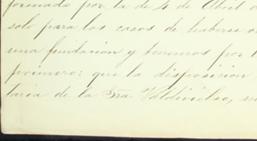 formada por la de 4 de Abril d
solo para los casos de haberse
una fundacion y tenemos por l
primero: que la disposicion
taria de la Sra. Valdivielso,